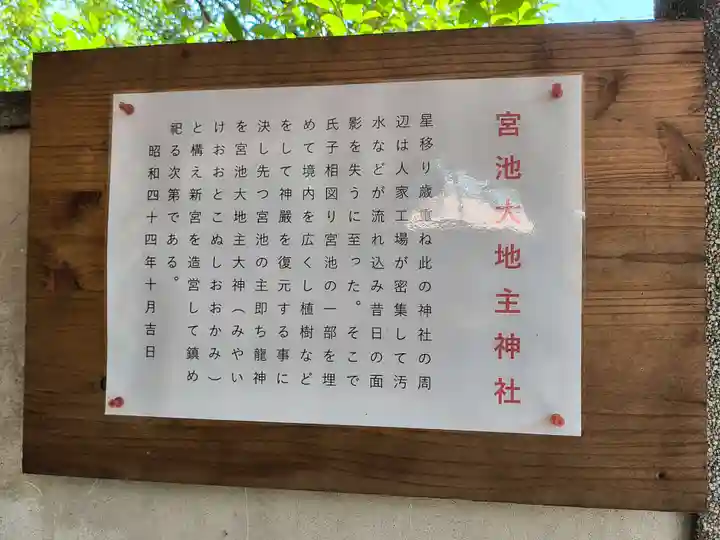 宮池大地主神社
星移り歳重ね此の神社の周
辺は人家工場が密集して汚
水などが流れ込み昔日の面
影を失うに至った。そこで
氏子相図り宮池の一部を埋
めて境内を広くし植樹など
をして神厳を復元する事に
決し先つ宮池の主即ち龍神
を宮池大地主大神（みやい
けおおとこぬしおおかみ）
と構え新宮を造営して鎮め
祀る次第である。
昭和四十四年十月吉日